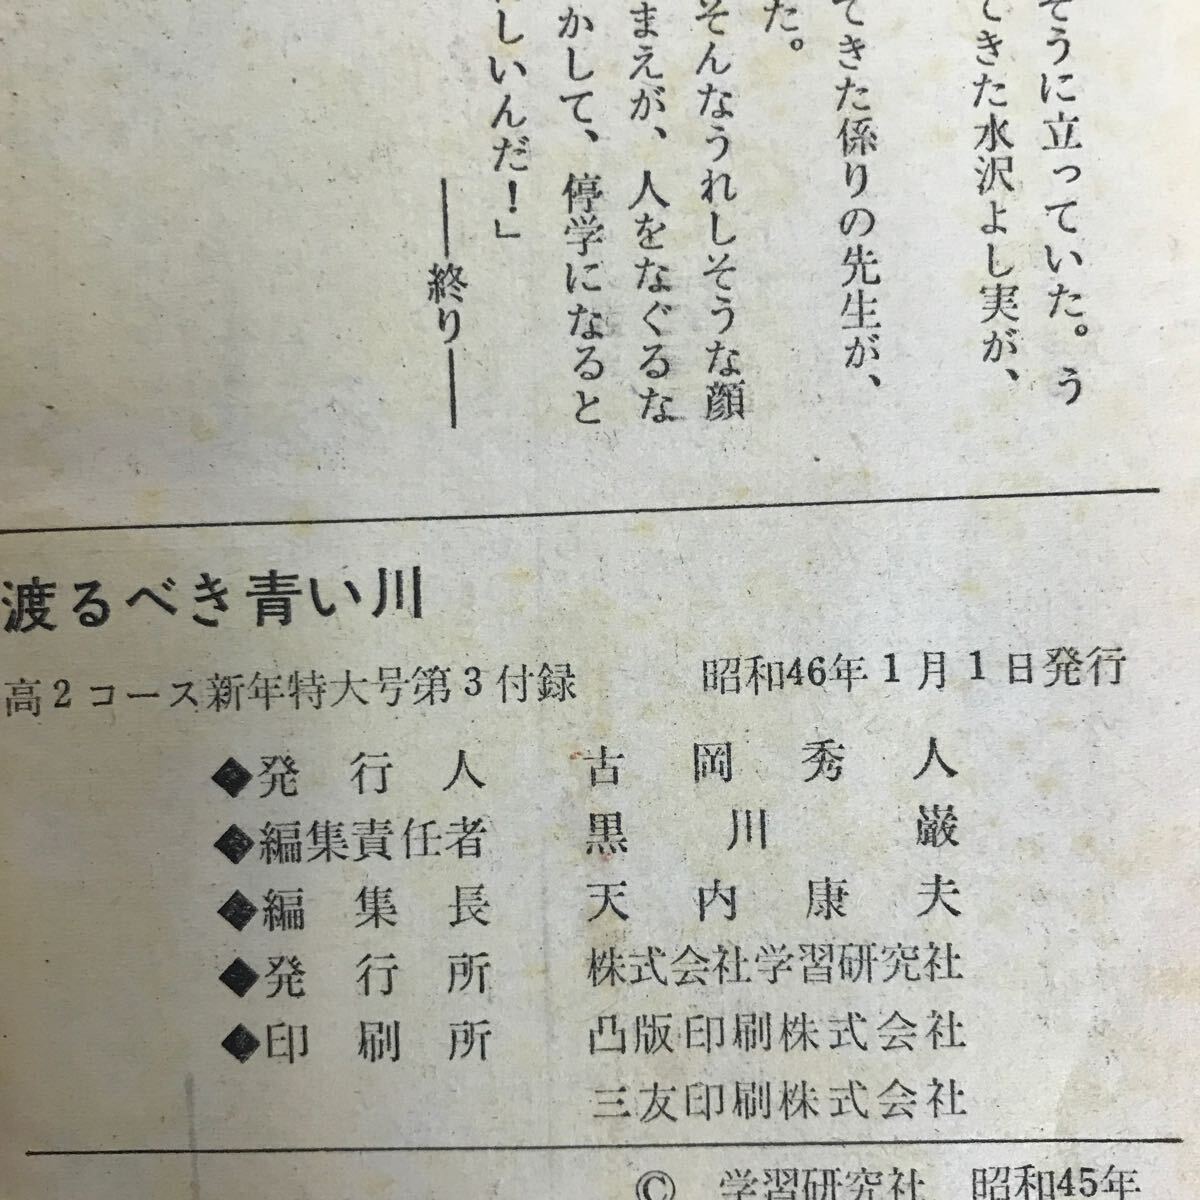 そうに立っていた。う
てきた水沢よし実が、
てきた係りの先生が、
た。
そんなうれしそうな顔
まえが、人をなぐるな
かして、停学になると
しいんだ！」
――終り――
渡るべき青い川
高2コース新年特大号第3付録　昭和46年1月1日発行
◆発行人　古岡秀人
◆編集責任者　黒川巌
◆編集長　天内康夫
◆発行所　株式会社学習研究社
◆印刷所　凸版印刷株式会社
三友印刷株式会社
©　学習研究社　昭和45年